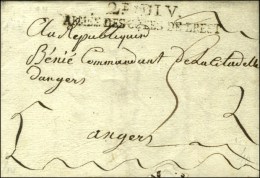 2E DIV
ARMÉE DES CÔTES DE BREST
Au Republiquin
Bénié Commandant de La Citadelle
dangers
angers